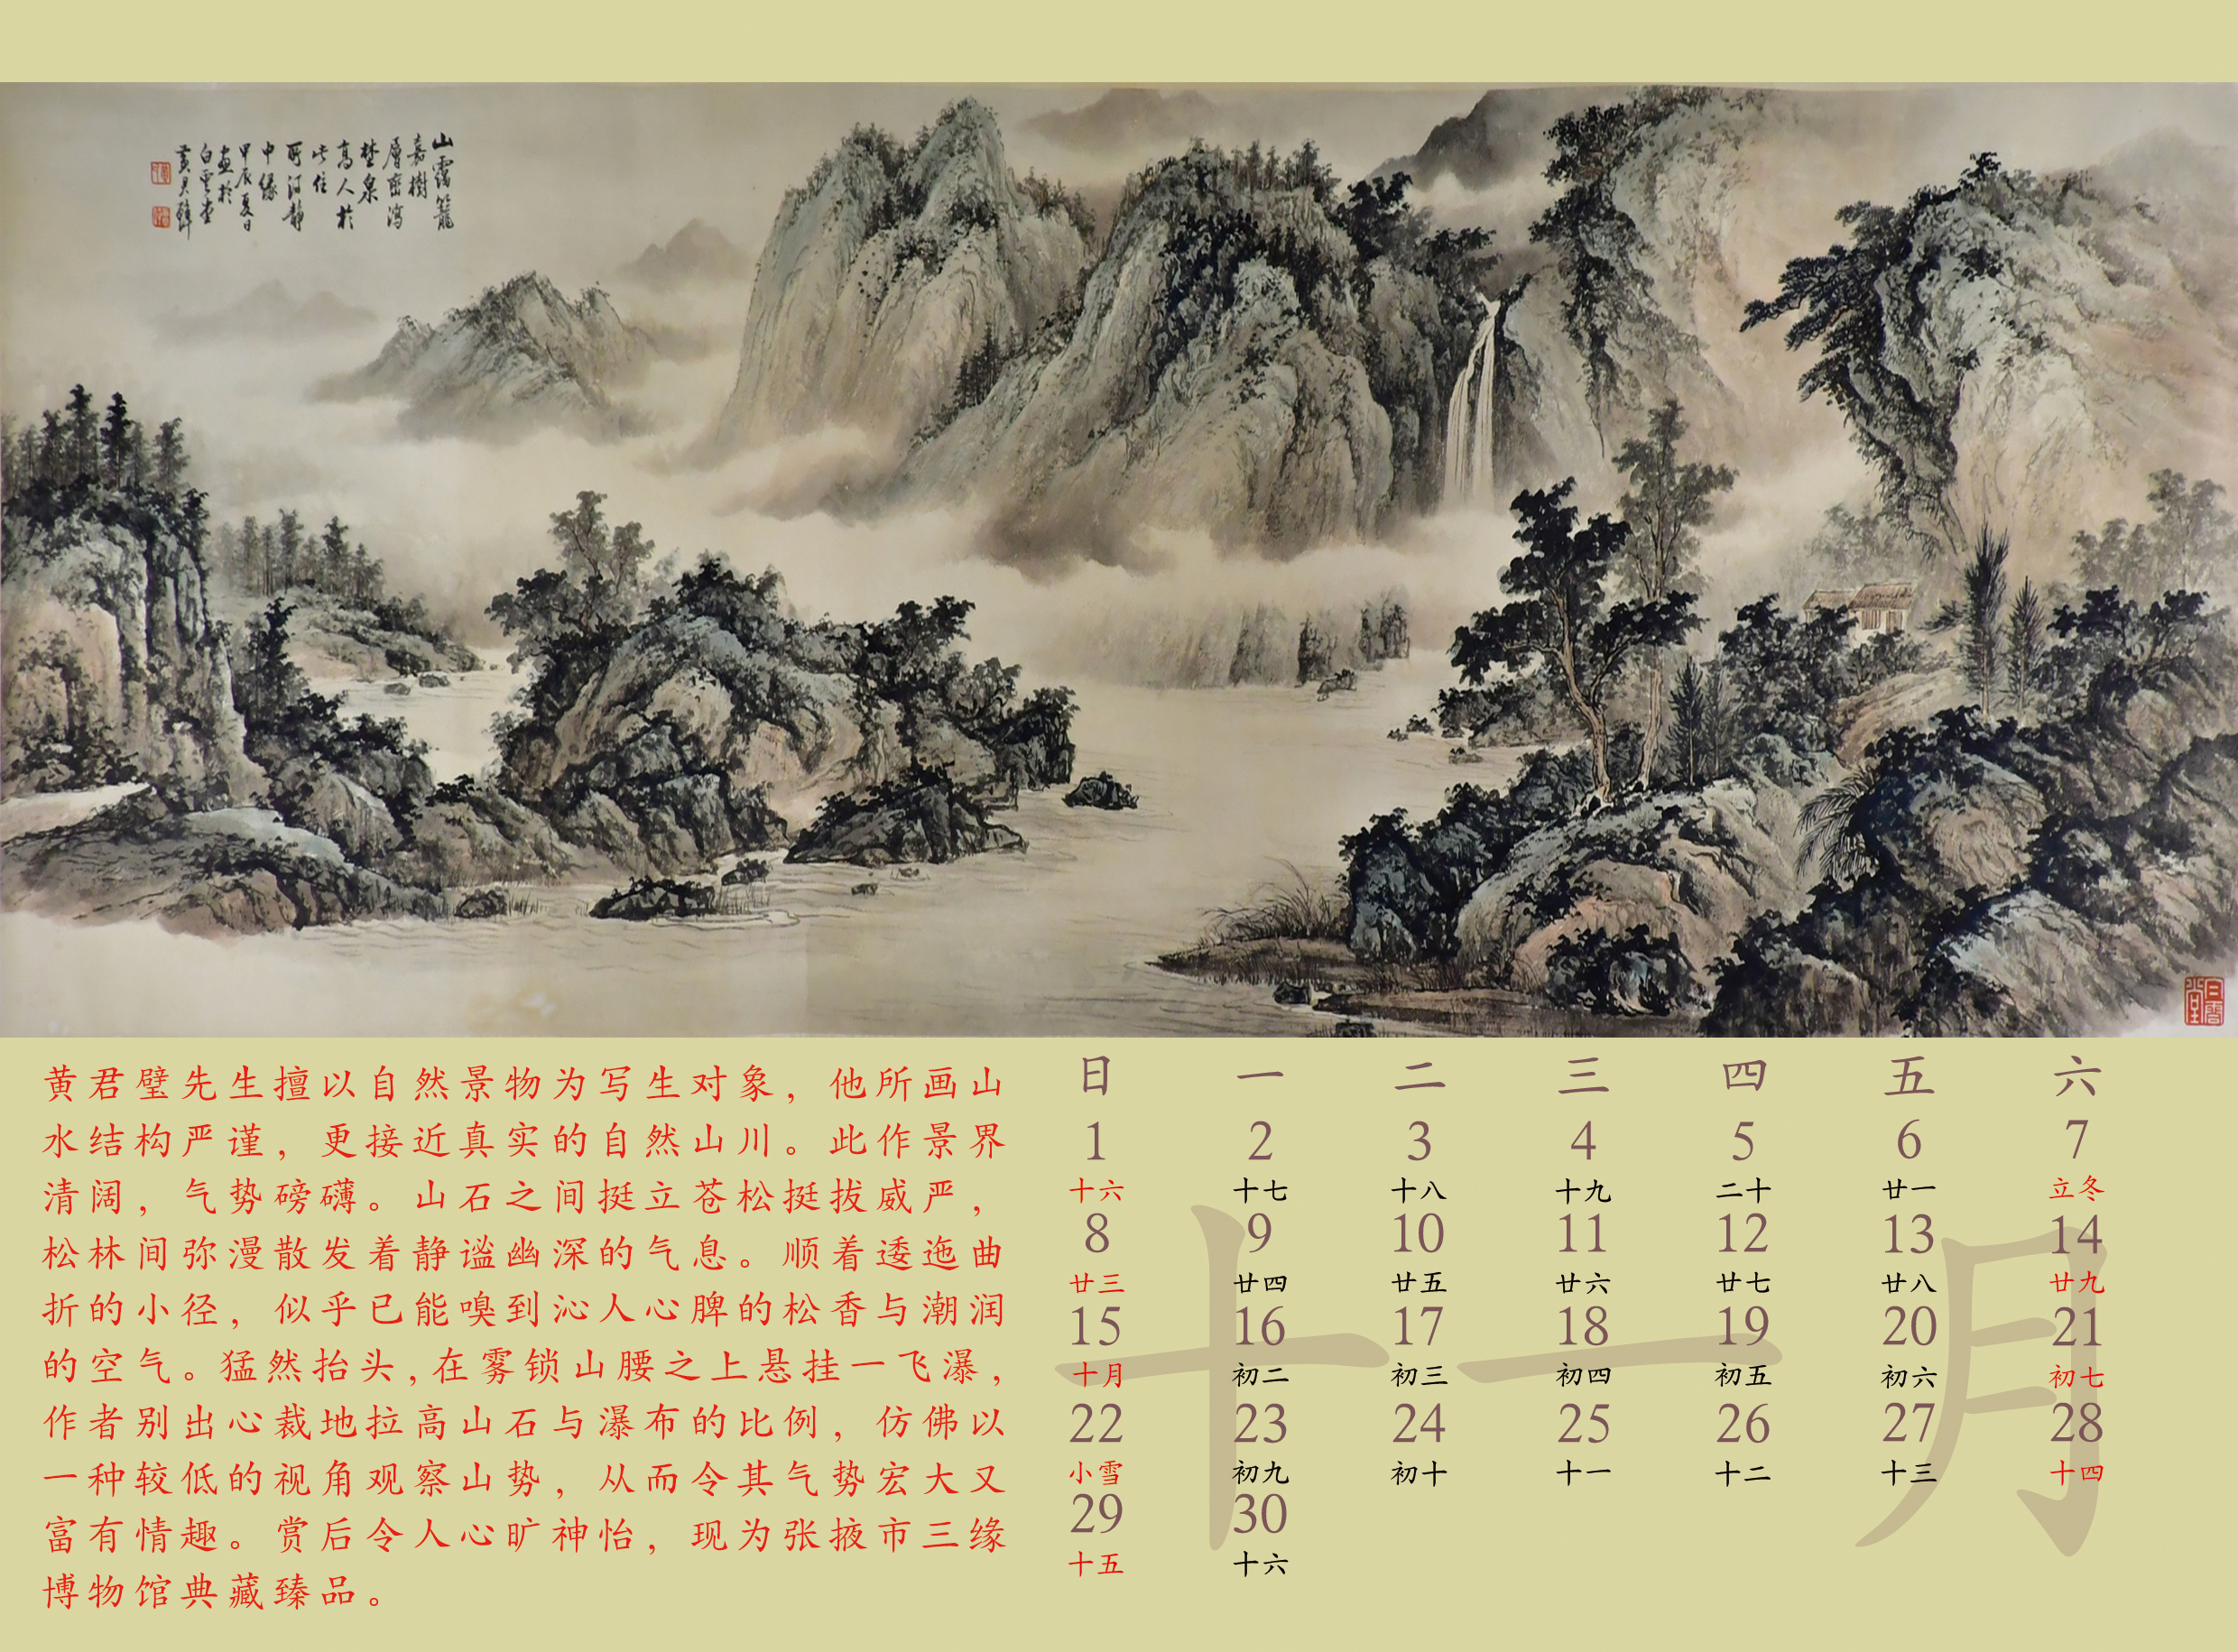 山靄籠
嘉樹
層巒瀉
埜泉
高人於
此住
靜
中緣
甲辰夏日
畫於
白雲堂
黃君璧
白雲堂
黄君璧先生擅以自然景物为写生对象，他所画山
水结构严谨，更接近真实的自然山川。此作景界
清阔，气势磅礴。山石之间挺立苍松挺拔威严，
松林间弥漫散发着静谧幽深的气息。顺着逶迤曲
折的小径，似乎已能嗅到沁人心脾的松香与潮润
的空气。猛然抬头，在雾锁山腰之上悬挂一飞瀑，
作者别出心裁地拉高山石与瀑布的比例，仿佛以
一种较低的视角观察山势，从而令其气势宏大又
富有情趣。赏后令人心旷神怡，现为张掖市三缘
博物馆典藏臻品。
十一月
日 一 二 三 四 五 六
1 2 3 4 5 6 7
十六 十七 十八 十九 二十 廿一 立冬
8 9 10 11 12 13 14
廿三 廿四 廿五 廿六 廿七 廿八 廿九
15 16 17 18 19 20 21
十月 初二 初三 初四 初五 初六 初七
22 23 24 25 26 27 28
小雪 初九 初十 十一 十二 十三 十四
29 30
十五 十六